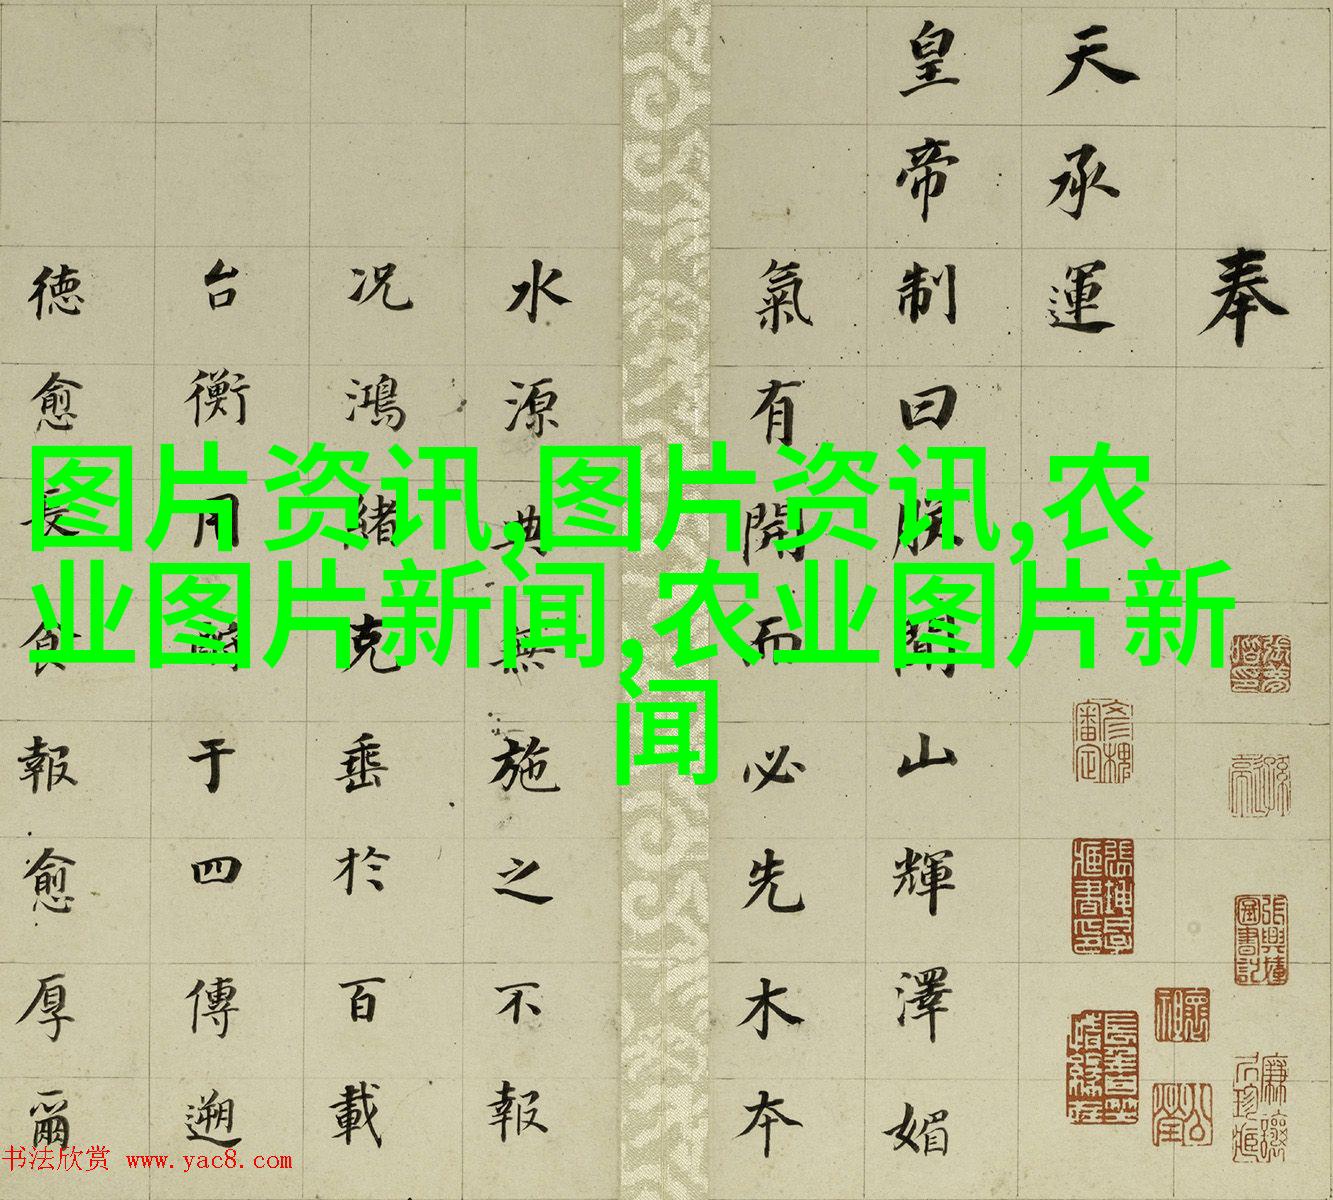 奉
天承運
皇帝制曰朕聞山輝澤媚
氣有開而必先木本
水源典無施之不報
况鴻緒克垂於百載
台衡用于四傳遡
德愈長食報愈厚爾
图片资讯,图片资讯,农
业图片新闻,农业图片新
闻
书法欣赏 www.yac8.com